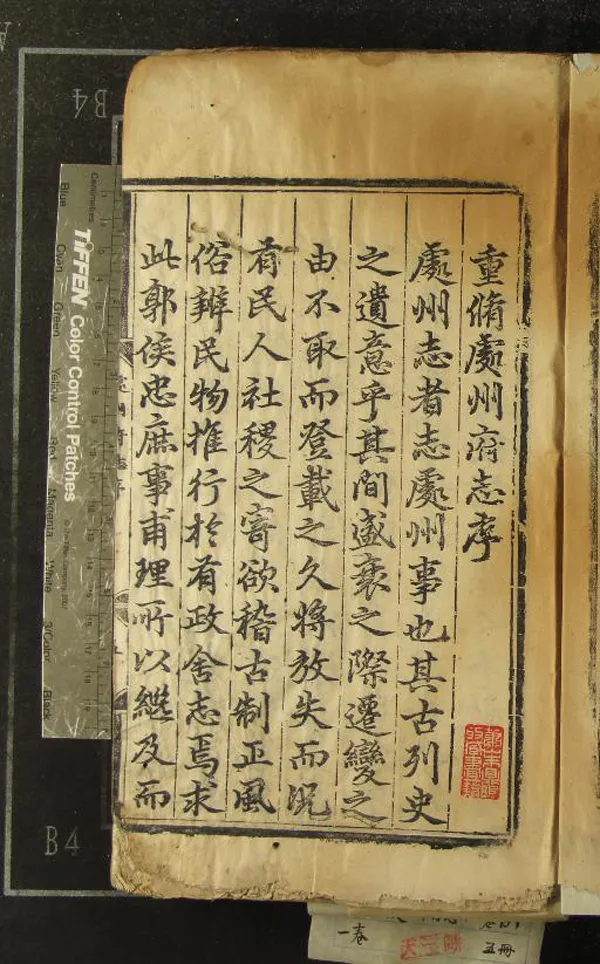 重脩處州府志序
處州志者志處州事也其古列史
之遺意乎其間盛衰之際遷變之
由不取而登載之久將放失而況
有民人社稷之寄欲稽古制正風
俗辨民物推行於有政舍志焉求
此郭侯忠庶事甫理所以繼及而
B4
Centimetres
TIFFEN Color Control Patches
Blue
Cyan
Green
Yellow
Red
Magenta
White
3/Color
Black
B4
一卷
五冊